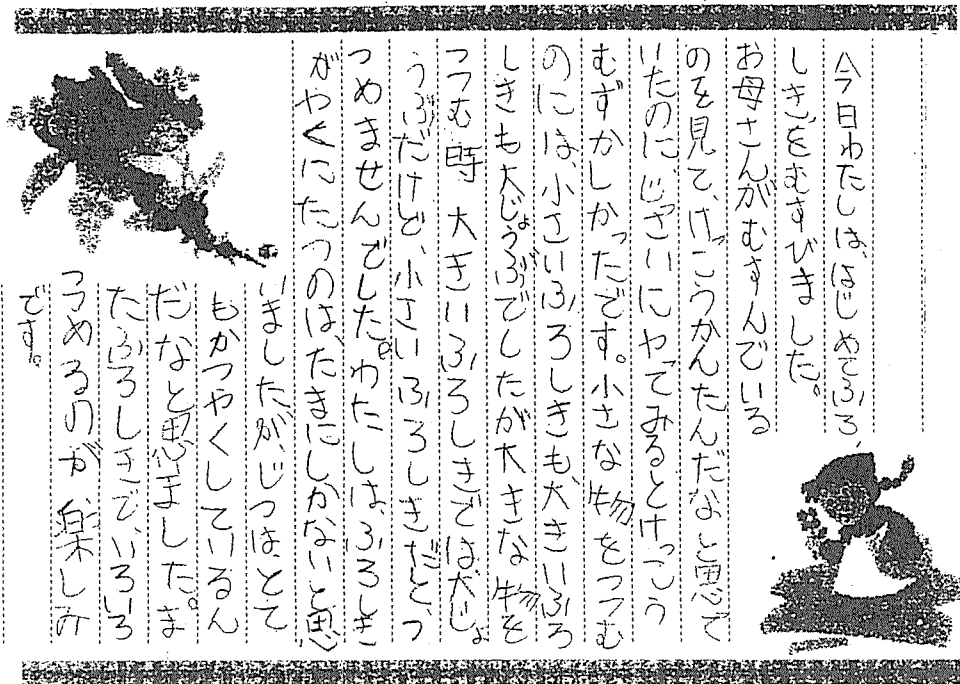 今日わたしは、はじめてふろ
しきをむすびました。
お母さんがむすんでいる
のを見て、けっこうかんたんだなと思って
いたのに、じっさいにやってみるとけっこう
むずかしかったです。小さな物をつつむ
のには、小さいふろしきも、大きいふろ
しきも大じょうぶでしたが大きな物を
つつむ時大きいふろしきでは大じょ
うぶだけど、小さいふろしきだと、つ
つめませんでした。わたしは、ふろしき
がやくにたつのは、たまにしかないと思
いましたが、じつはとて
もかつやくしているん
だなと思いました。ま
たふろしきで、いろいろ
つつめるのが楽しみ
です。